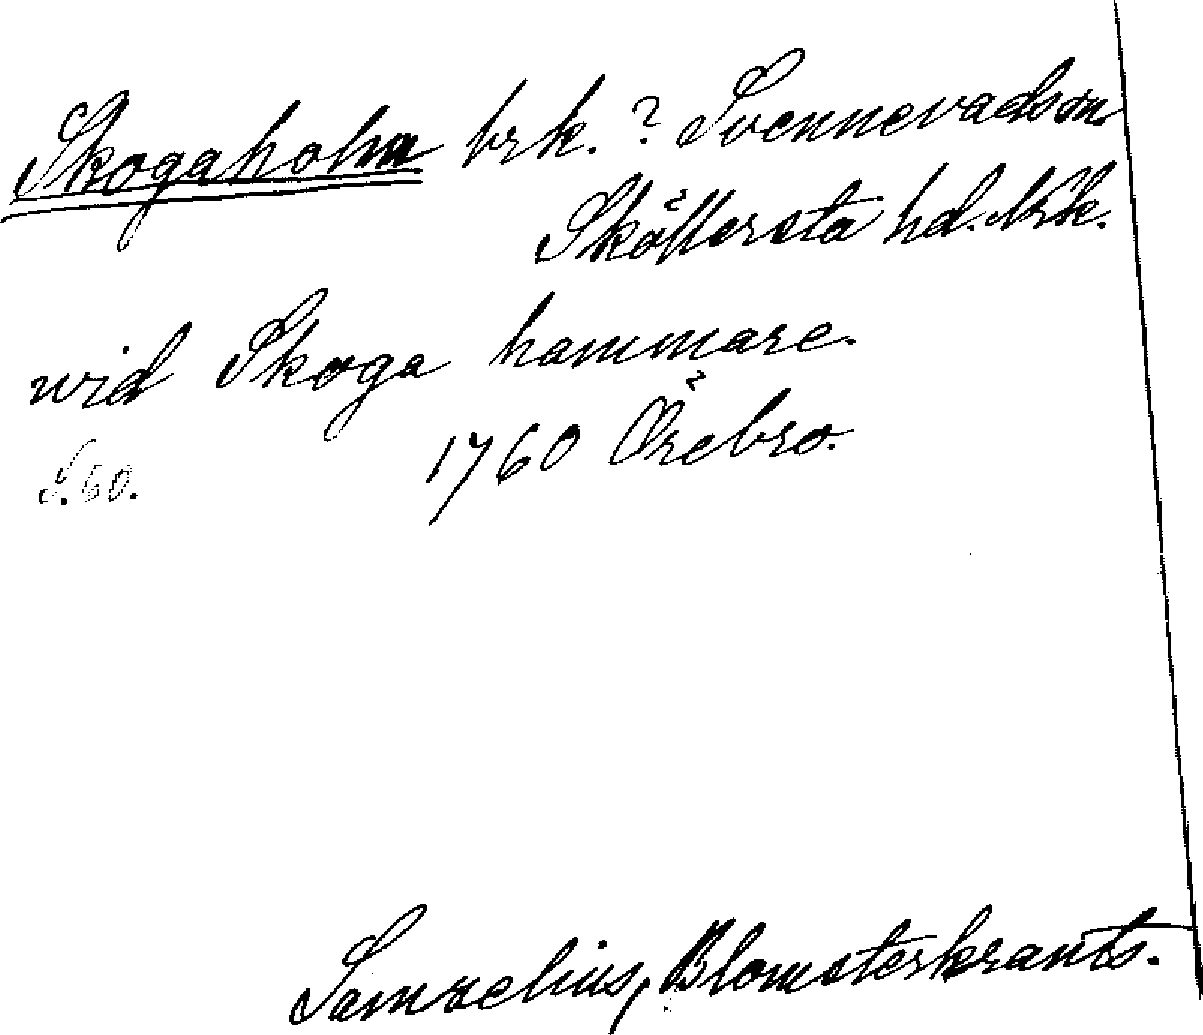 Skogaholm brk. ? Svennevads sn.
Sköllersta hd. Nrk.
wid Skoga hammare.
1760 Örebro.
S. 60.
Samzelius, Blomsterkrants.